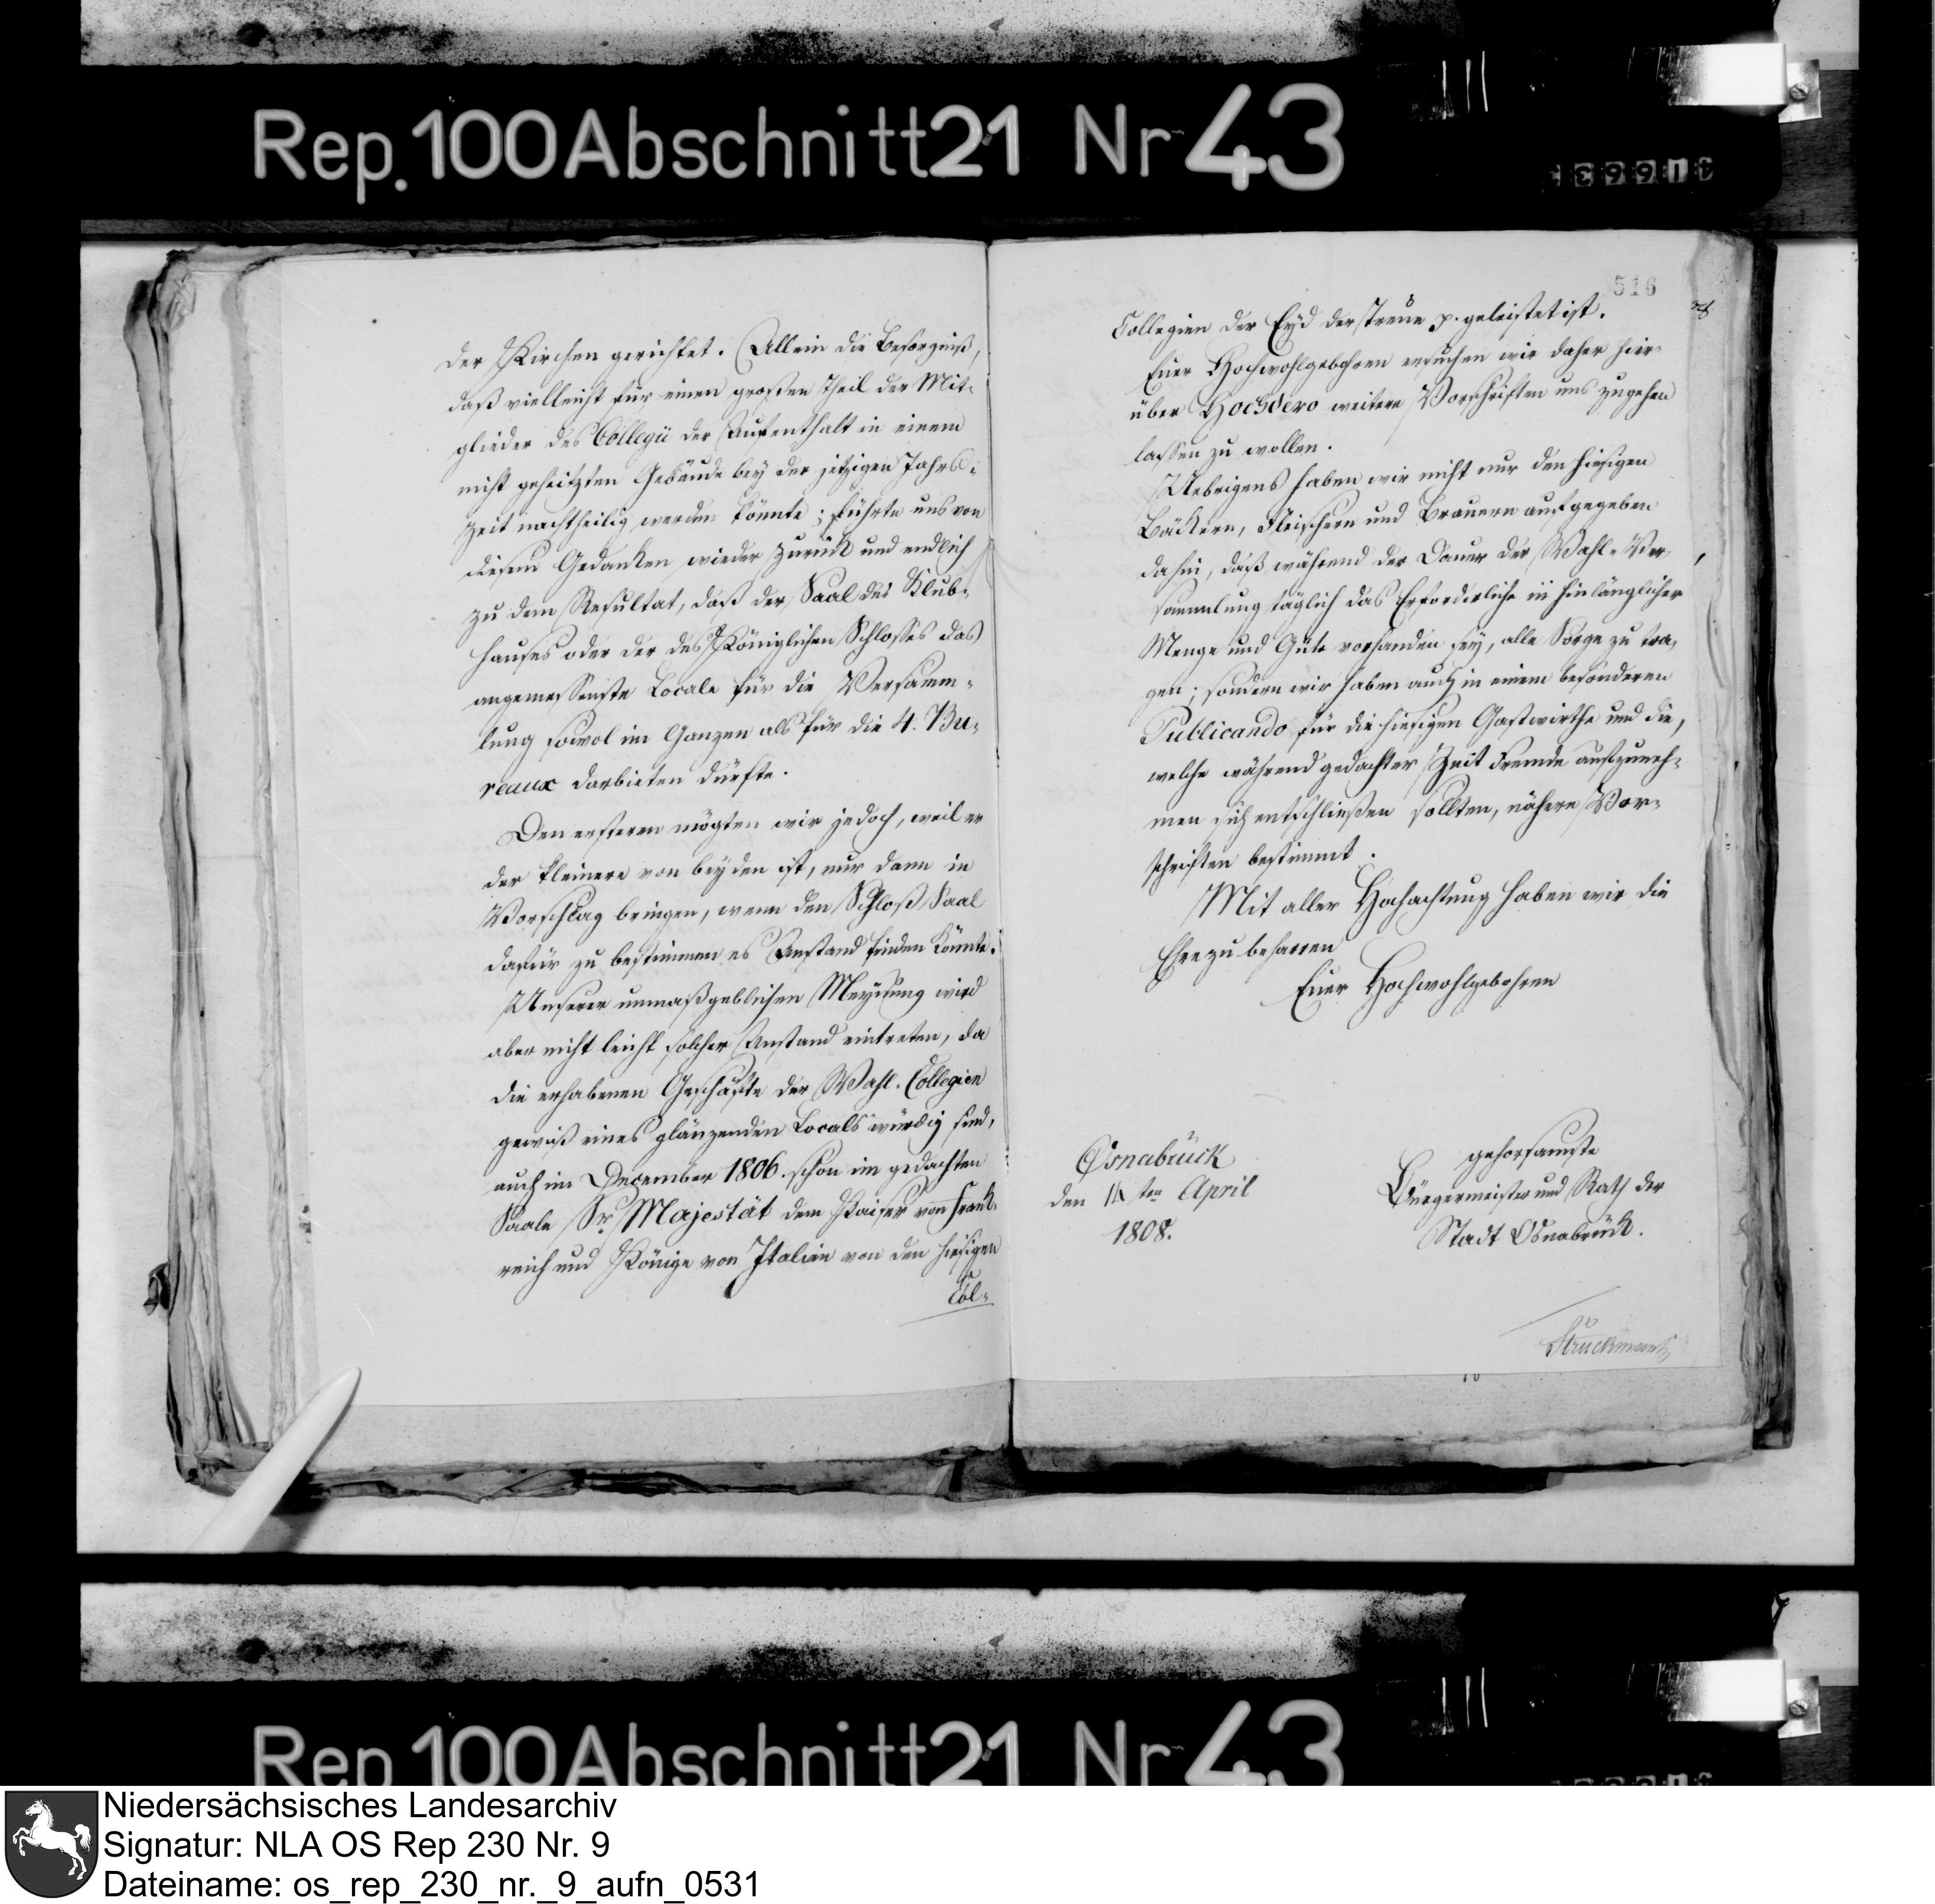 Rep. 100 Abschnitt 21 Nr 43
der Kirchen gerichtet. Allein die Besorgniß,
daß vielleicht für einen großen Theil der Mit-
glieder des Collegii der Aufenthalt in einem
nicht geheitzten Gebäude bey der jetzigen Jahrs-
zeit nachtheilig werden könnte; führte uns von
diesem Gedanken wieder zurück und endlich
zu dem Resultat, daß der Saal des Klub-
hauses oder der des Königlichen Schlosses das
angemessenste Locale für die Versamm-
lung sowol im Ganzen als für die 4. Bu-
reaux darbieten dürfte.
Den ersteren mögten wir jedoch, weil er
der kleinere von beyden ist, nur dann in
Vorschlag bringen, wenn den Schloß Saal
dafür zu bestimmen es Anstand finden könnte.
Unserer unmaßgeblichen Meynung wird
aber nicht leicht solcher Anstand eintreten, da
die erhabenen Geschäfte der Wahl-Collegien
gewiß eines glänzenden Locals würdig sind,
auch im December 1806. schon im gedachten
Saale Sr. Majestät dem Kaiser von Frank-
reich und Könige von Italien von den hiesigen
Col-
516
Collegien der Eyd der Treue p. geleistet ist.
Euer Hochwohlgebohren ersuchen wir daher hier-
über Hochdero weitere Vorschriften uns zugehen
lassen zu wollen.
Uebrigens haben wir nicht nur den hiesigen
Bäckern, Fleischern und Brauern aufgegeben
dahin, daß während der Dauer der Wahl-Ver-
sammlung täglich das Erforderliche in hinlänglicher
Menge und Güte vorhanden sey, alle Sorge zu tra-
gen; sondern wir haben auch in einem besonderen
Publicando für die hiesigen Gastwirthe und die,
welche während gedachter Zeit Fremde aufzuneh-
men sich entschließen sollten, nähere Vor-
schriften bestimmt.
Mit aller Hochachtung haben wir die
Ehre zu beharren
Euer Hochwohlgebohren
Osnabrück
den ten April
1808.
gehorsamste
Bürgermeister und Rath der
Stadt Osnabrück.
Rep 100 Abschnitt 21 Nr 43
Niedersächsisches Landesarchiv
Signatur: NLA OS Rep 230 Nr. 9
Dateiname: os_rep_230_nr._9_aufn_0531